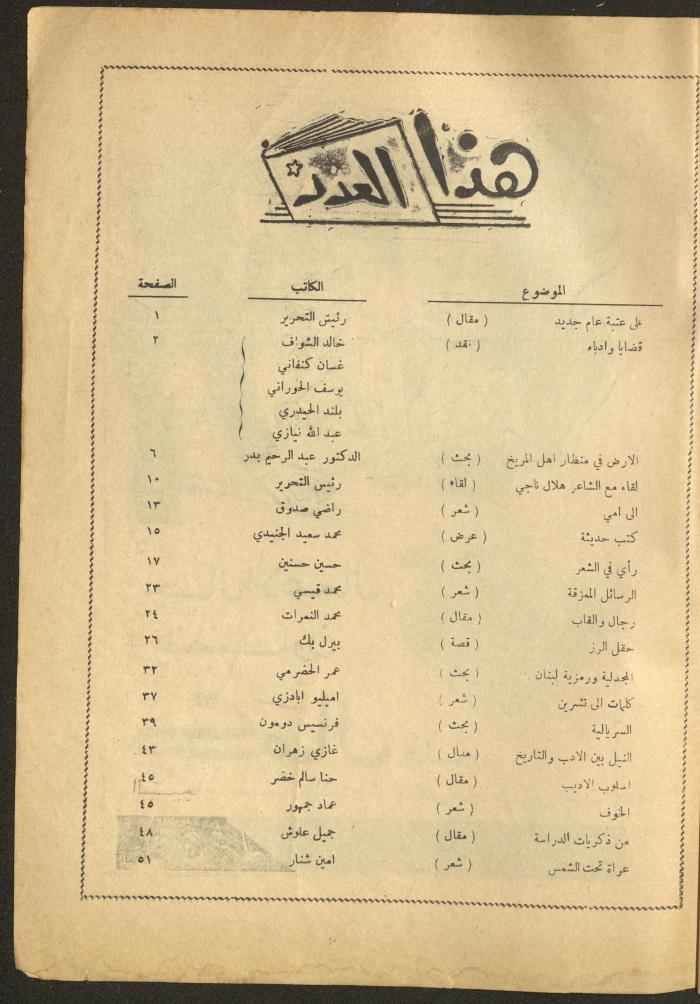 هذا العدد
الموضوع الكاتب الصفحة
على عتبة عام جديد ( مقال ) رئيس التحرير ١
قضايا وادباء ( نقد ) خالد الشواف ٢
غسان كنفاني
يوسف الحوراني
بلند الحيدري
عبد الله نيازي
الارض في منظار اهل المريخ ( بحث ) الدكتور عبد الرحيم بدر ٦
لقاء مع الشاعر هلال ناجي ( لقاء ) رئيس التحرير ١٠
الى امي ( شعر ) راضي صدوق ١٣
كتب حديثة ( عرض ) محمد سعيد الجنيدي ١٥
رأي في الشعر ( بحث ) حسين حسنين ١٧
الرسائل الممزقة ( شعر ) محمد قيسي ٢٣
رجال والقاب ( مقال ) محمد النمرات ٢٤
حقل الرز ( قصة ) بيرل بك ٢٦
المجدلية ورمزية لبنان ( بحث ) عمر الحضرمي ٣٢
كلمات الى تشرين ( شعر ) اميليو ابادزي ٣٧
السريالية ( بحث ) فرنسيس دومون ٣٩
النيل بين الادب والتاريخ ( مقال ) غازي زهران ٤٣
اسلوب الاديب ( مقال ) حنا سالم خضر ٤٥
الخوف ( شعر ) عماد جمهور ٤٥
من ذكريات الدراسة ( مقال ) جميل علوش ٤٨
عراة تحت الشمس ( شعر ) امين شنار ٥١